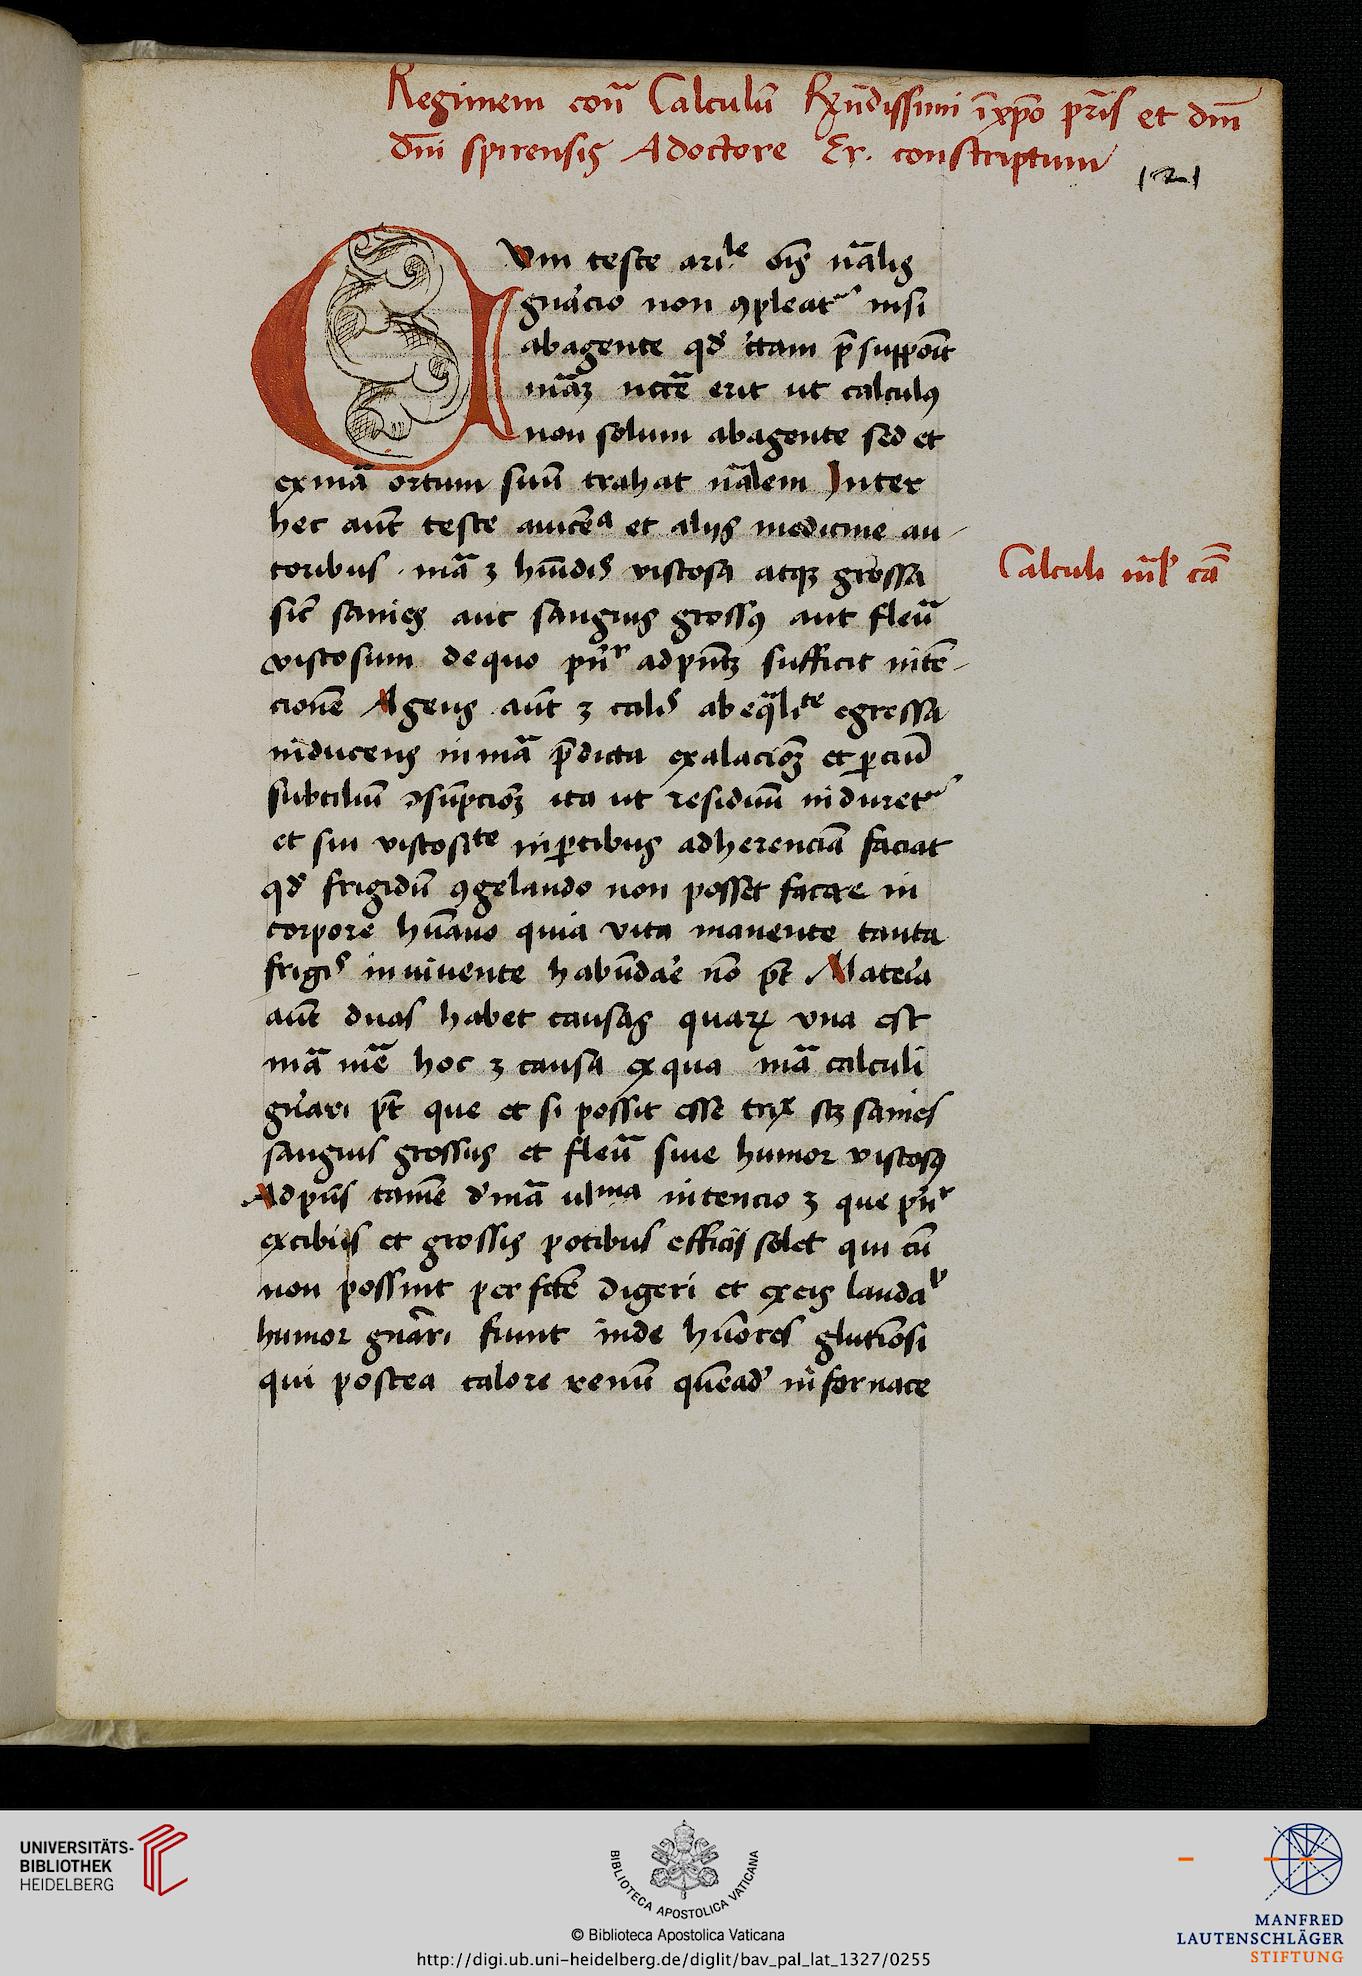 Regimem cont̄ Calculū Rx̄ndissimi ī xp̄o pr̄is et dm̄
dn̄i spirensis A doctore Er. constriptum
121
Cum teste ariˡᵉ oīs nālis
gn̄acio non ꝯpleatʳ nisi
ab agente qd̄ tam p̄supponit
mām ncc̄ē erit ut calculꝰ
non solum ab agente sed et
ex mā ortum suū trahat nālem Inter
hec aūt teste auicēᵃ et alijs medicine au-
toribus mā ꝫ hūidis viscosa atqꝫ grossa
sic̄ sanies aut sanguis grossꝰ aut fleūa
viscosum de quo pn̄ʳ ad pn̄tꝫ sufficit inten-
cionē Agens aūt ꝫ calid' ab eq̄liᵗᵉ egressa
inducens in mā p̄dicta exalacioꝫ et ꝑciū
subtiliū ↄsūpcioꝫ ita ut residuū induretʳ
et sui viscosiᵗᵉ in ꝑtibus adherenciā faciat
qd̄ frigidū ꝯgelando non posset facere in
corpore hūano quia vita manente tanta
frigi' in uiuente habūdar̄e nō pt̄ Materia
aūt duas habet causas quaꝝ vna est
mā mē hoc ꝫ causa ex qua mā calculi
gn̄ari pt̄ que et si possit esse trix sꝫ sanies
sanguis grossus et fleūa siue humor viscosꝰ
Ad pn̄s tamē d' mā ulᵐᵃ intencio ꝫ que pn̄ʳ
ex cibis et grossis potibus effici solet qui cū
non possint perfcē digeri et ex eis laudaˡ'
humor gn̄ari fiunt inde hūores glutinosi
qui postea calore renū quēad' in fornace
Calculi mˡ' cā
UNIVERSITÄTS-
BIBLIOTHEK
HEIDELBERG
BIBLIOTECA APOSTOLICA VATICANA
© Biblioteca Apostolica Vaticana
http://digi.ub.uni-heidelberg.de/diglit/bav_pal_lat_1327/0255
MANFRED
LAUTENSCHLÄGER
STIFTUNG